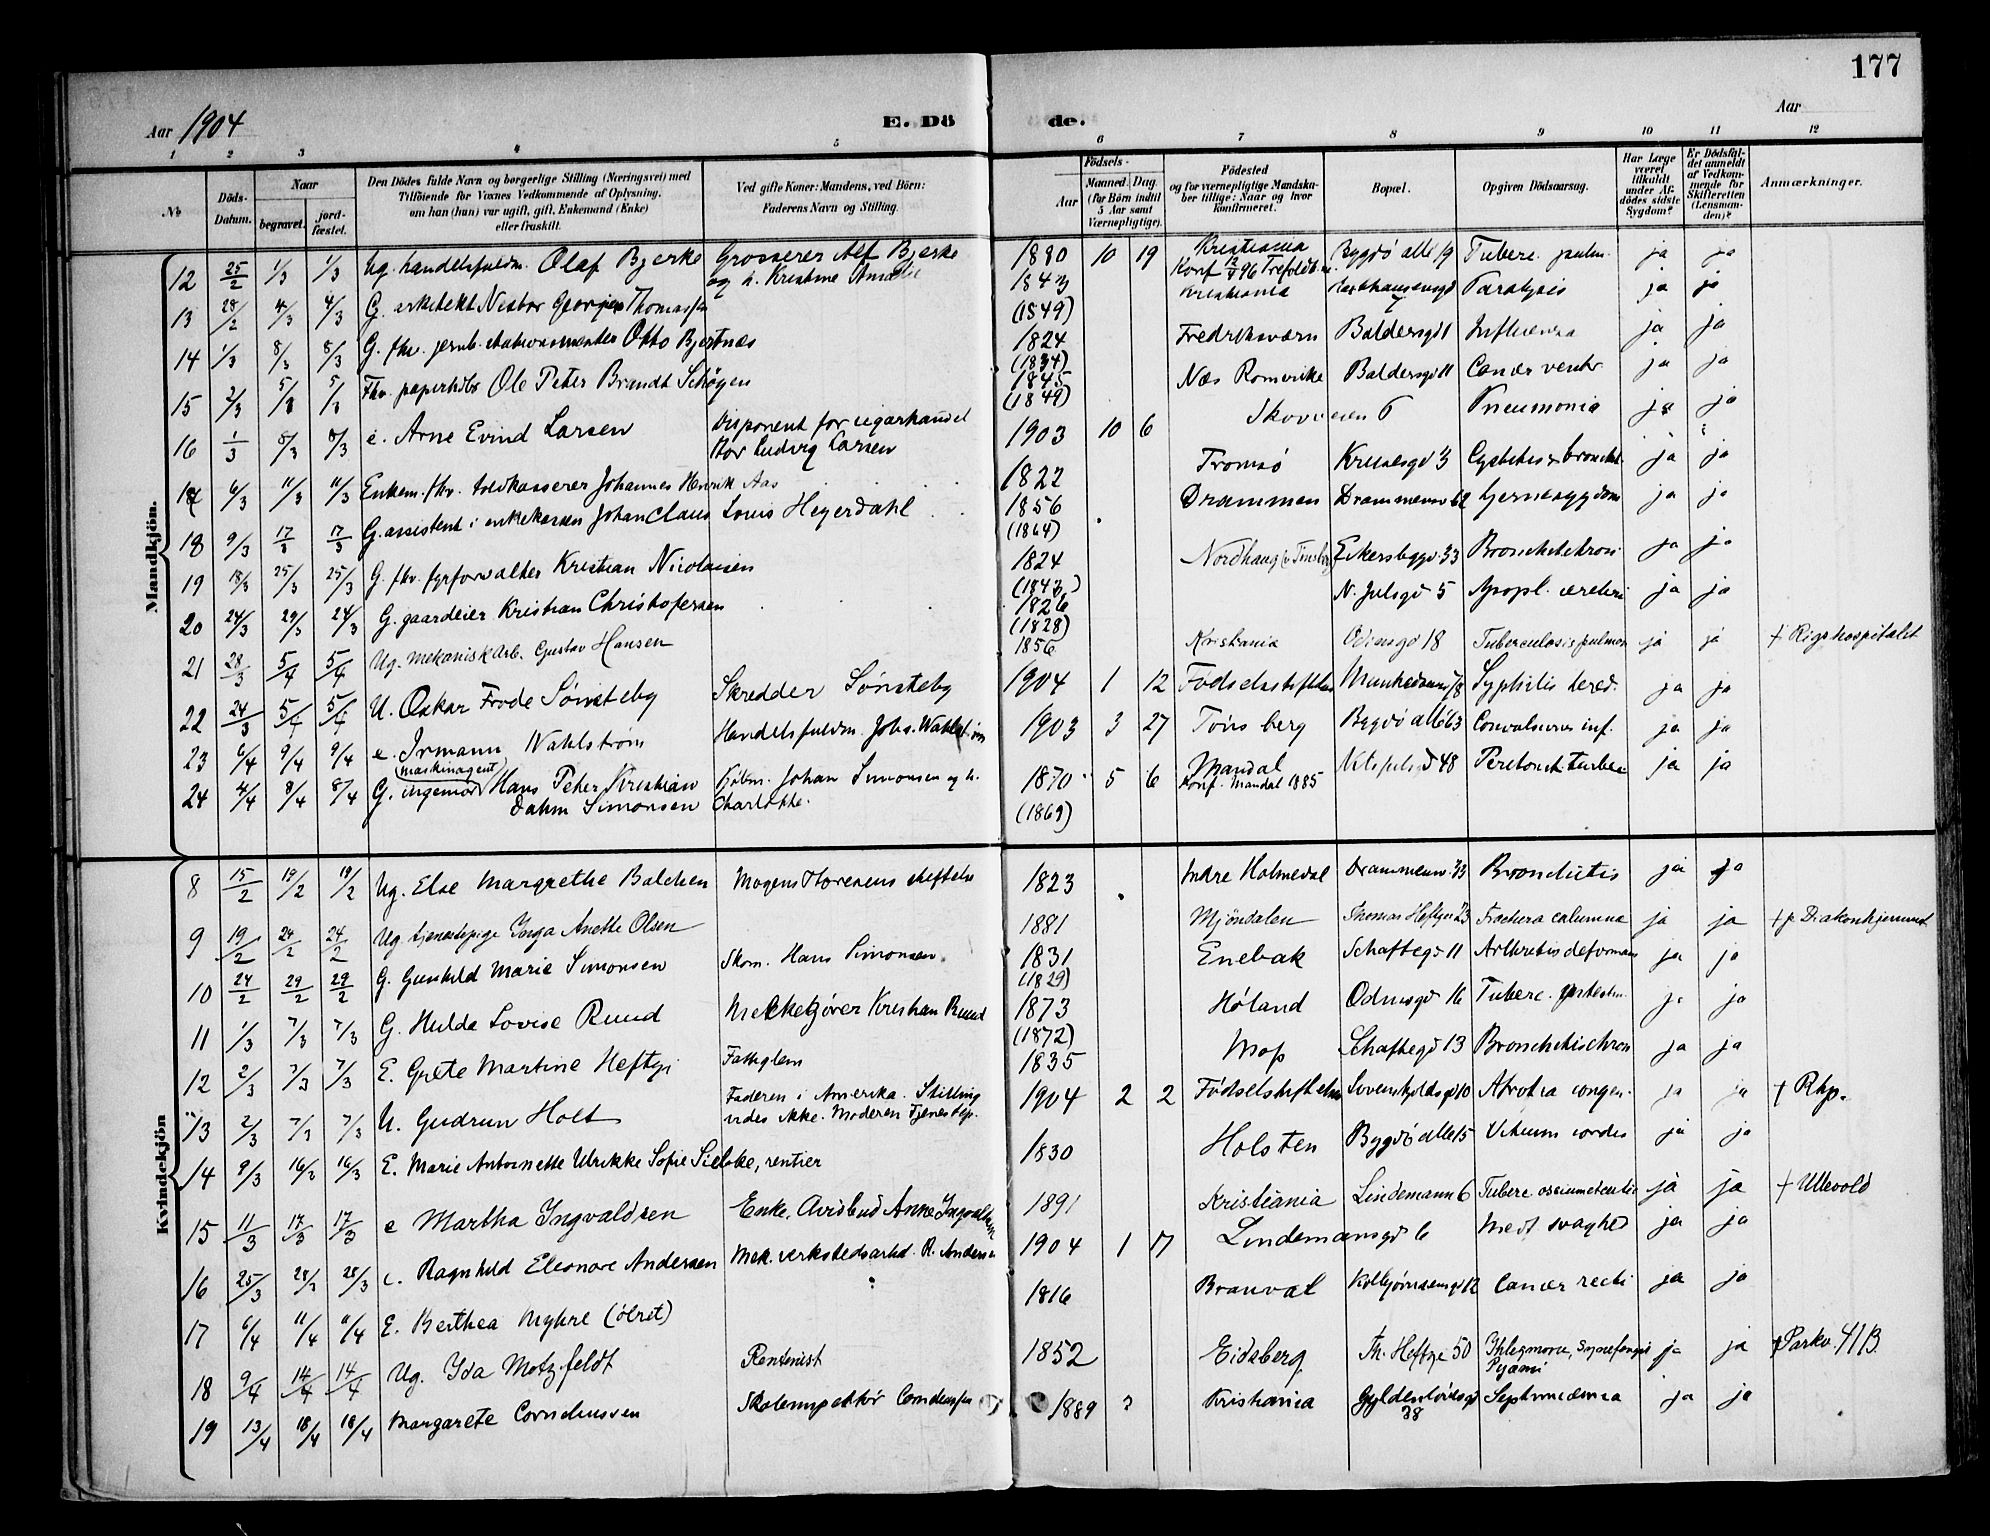 177
Aar 1904 E. Dö de. Aar
1 2 3 4 5 6 7 8 9 10 11 12
№ Döds-Datum. Naar begravet. jord-fæstet. Den Dödes fulde Navn og borgerlige Stilling (Næringsvei) med Tilföiende for Voxnes Vedkommende af Oplysning, om han (hun) var ugift, gift, Enkemand (Enke) eller fraskilt. Ved gifte Koner: Mandens, ved Börn: Faderens Navn og Stilling. Födsels- Aar Maaned. Dag. (for Börn indtil 5 Aar samt Værnepligtige). Födested og for værnepligtige Mandskaber tillige: Naar og hvor Konfirmeret. Bopæl. Opgiven Dödsaarsag. Har Læge været tilkaldt under Afdödes sidste Sygdom? Er Dödsfaldet anmeldt af Vedkommende for Skifteretten (Lensmanden)? Anmærkninger.
Mandkjön.
12 25/2 1/3 1/3 Ug. handelsfuldm. Olaf Bjerke Grosserer Alf Bjerke og h. Kristine Amalie 1880 10 19 Kristiania Konf 96 Bygdö allé 19 Tuberc. pulm. ja ja
13 28/2 4/3 4/3 G. arkitekt Nestor Georg Thomassen 1843 (1849) Kristiania 7 Paralysis ja ja
14 1/3 8/3 8/3 G. fhv. jernb. stationsmester Otto Bjertnæs 1824 (1834) Fredriksværn Baldersgd 1 Influenza ja ja
15 2/3 5/3 5/3 Fhv. Ole Peter Brandt Schøyen 1845 (1849) Næs Romerike Baldersgd 11 Cancer ventr ja ja
16 1/3 8/3 8/3 e. Arne Evind Larsen Disponent for cigarhandel Thor Ludvig Larsen 1903 10 6 Skovveien 6 Pneumonia ja ja
17 6/3 11/3 11/3 Enkem. fhv. toldkasserer Johannes Henrik Aas 1822 Tromsö Krusesgd 3 Cystitis & bronchit ja ja
18 9/3 17/3 17/3 G. assistent i enkekassen Johan Claus Louis Heyerdahl 1856 (1864) Drammen Drammensv 62 Hjernesygdom ja ja
19 18/3 25/3 25/3 G. fhv. fyrforvalter Kristian Nicolaisen 1824 (1843) Nordhaug Eckersbggd. 33 Bronchitis kron ja ja
20 24/3 29/3 24/3 G. gaardeier Kristian Christofersen 1826 (1828) N. Julsgd 5 Apopl. cerebri ja ja
21 28/3 5/4 5/4 Ug. mekanisk arb. Gustav Hansen 1856 Kristiania Odinsgd 18 Tuberculosis pulmon ja ja † Rigshospitalet
22 24/3 5/4 5/4 U. Oskar Frode Sönsteby Skredder Sönsteby 1904 1 12 Födselsstiftelsen Syphilis hered. ja ja
23 6/4 9/4 9/4 e. Irmann Wahlström Handelsfuldm. Johs. Wahlström 1903 3 27 Tönsberg Bygdö allé 63 Convulsiones inf. ja ja
24 4/4 8/4 8/4 G. ingeniör (maskinagent) Hans Peter Kristian Dahm Simonsen Kjöbm. Johan Simonsen og h. Charlotte. 1870 (1869) 5 6 Mandal Konf. Mandal 1885 Peritonit tuberc ja ja
Kvindekjön
8 15/2 19/2 19/2 Ug. Else Margrethe Balchen Mogens Thoresens stiftelse 1823 Indre Holmedal Drammensv. 33 Bronchitis ja ja
9 19/2 24/2 24/2 Ug. tjenestepige Inga Anette Olsen 1881 Mjöndalen Thomas Heftyes 23 Fractura columna ja ja † p. Diakonhjemmet
10 24/2 29/2 29/2 G. Gunhild Marie Simonsen Skom. Hans Simonsen. 1831 (1829) Enebak Schaftegd 11 Arthritis deformans ja ja
11 1/3 7/3 7/3 G. Hulda Lovise Ruud Mekkegjörer Kristian Ruud 1873 (1872) Höland Odinsgd 16 Tuberc. ja ja
12 2/3 7/3 7/3 E. Grete Martine Heftye Fattiglem 1835 Moss Schaftegd 13 Bronchitis chron ja ja
13 2/3 7/3 7/3 U. Gudrun Holt Faderen i Amerika. Stilling vides ikke. Moderen tjenestep. 1904 2 2 Födselsstiftelsen Atrofia congen. ja ja † Rhp.
14 9/3 16/3 16/3 E. Marie Antoinette Ulrikke Sofie Siebke, rentier 1830 Holsten Bygdö alle 15 Vitium cordis ja ja
15 11/3 17/3 17/3 e Martha Ingvaldsen Enke, Avisbud Anne Ingvaldsen 1891 Kristiania Lindemann 6 Tuberc ossium ja ja † Ullevold
16 25/3 28/3 28/3 e. Ragnhild Eleonore Andersen Mek. verkstedsarbd. R. Andersen 1904 1 17 Lindemansgd 6 Medf svaghed ja ja
17 6/4 11/4 11/4 E. Berthea Myhre (ölret) 1816 Kolbjörnsensgd 12 Cancer recti ja ja
18 9/4 14/4 14/4 Ug. Ida Motzfeldt Rentenist 1852 Eidsberg Th. Heftye 50 Phlegmone, Pyæmi ja ja † Parkv. 41 B
19 13/4 18/4 18/4 Margarete Corneliussen Skoleinspektör Corneliussen 1889 ? Kristiania Gyldenlövesgd 38 Septicæmia ja ja